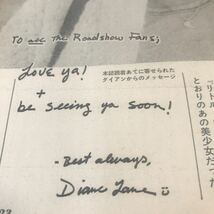 To all the Roadshow Fans;
Love ya!
+
be seeing ya soon!
- Best always,
Diane Lane
本誌読者あてに寄せられた
ダイアンからのメッセージ
とおりのあの美少女だっ